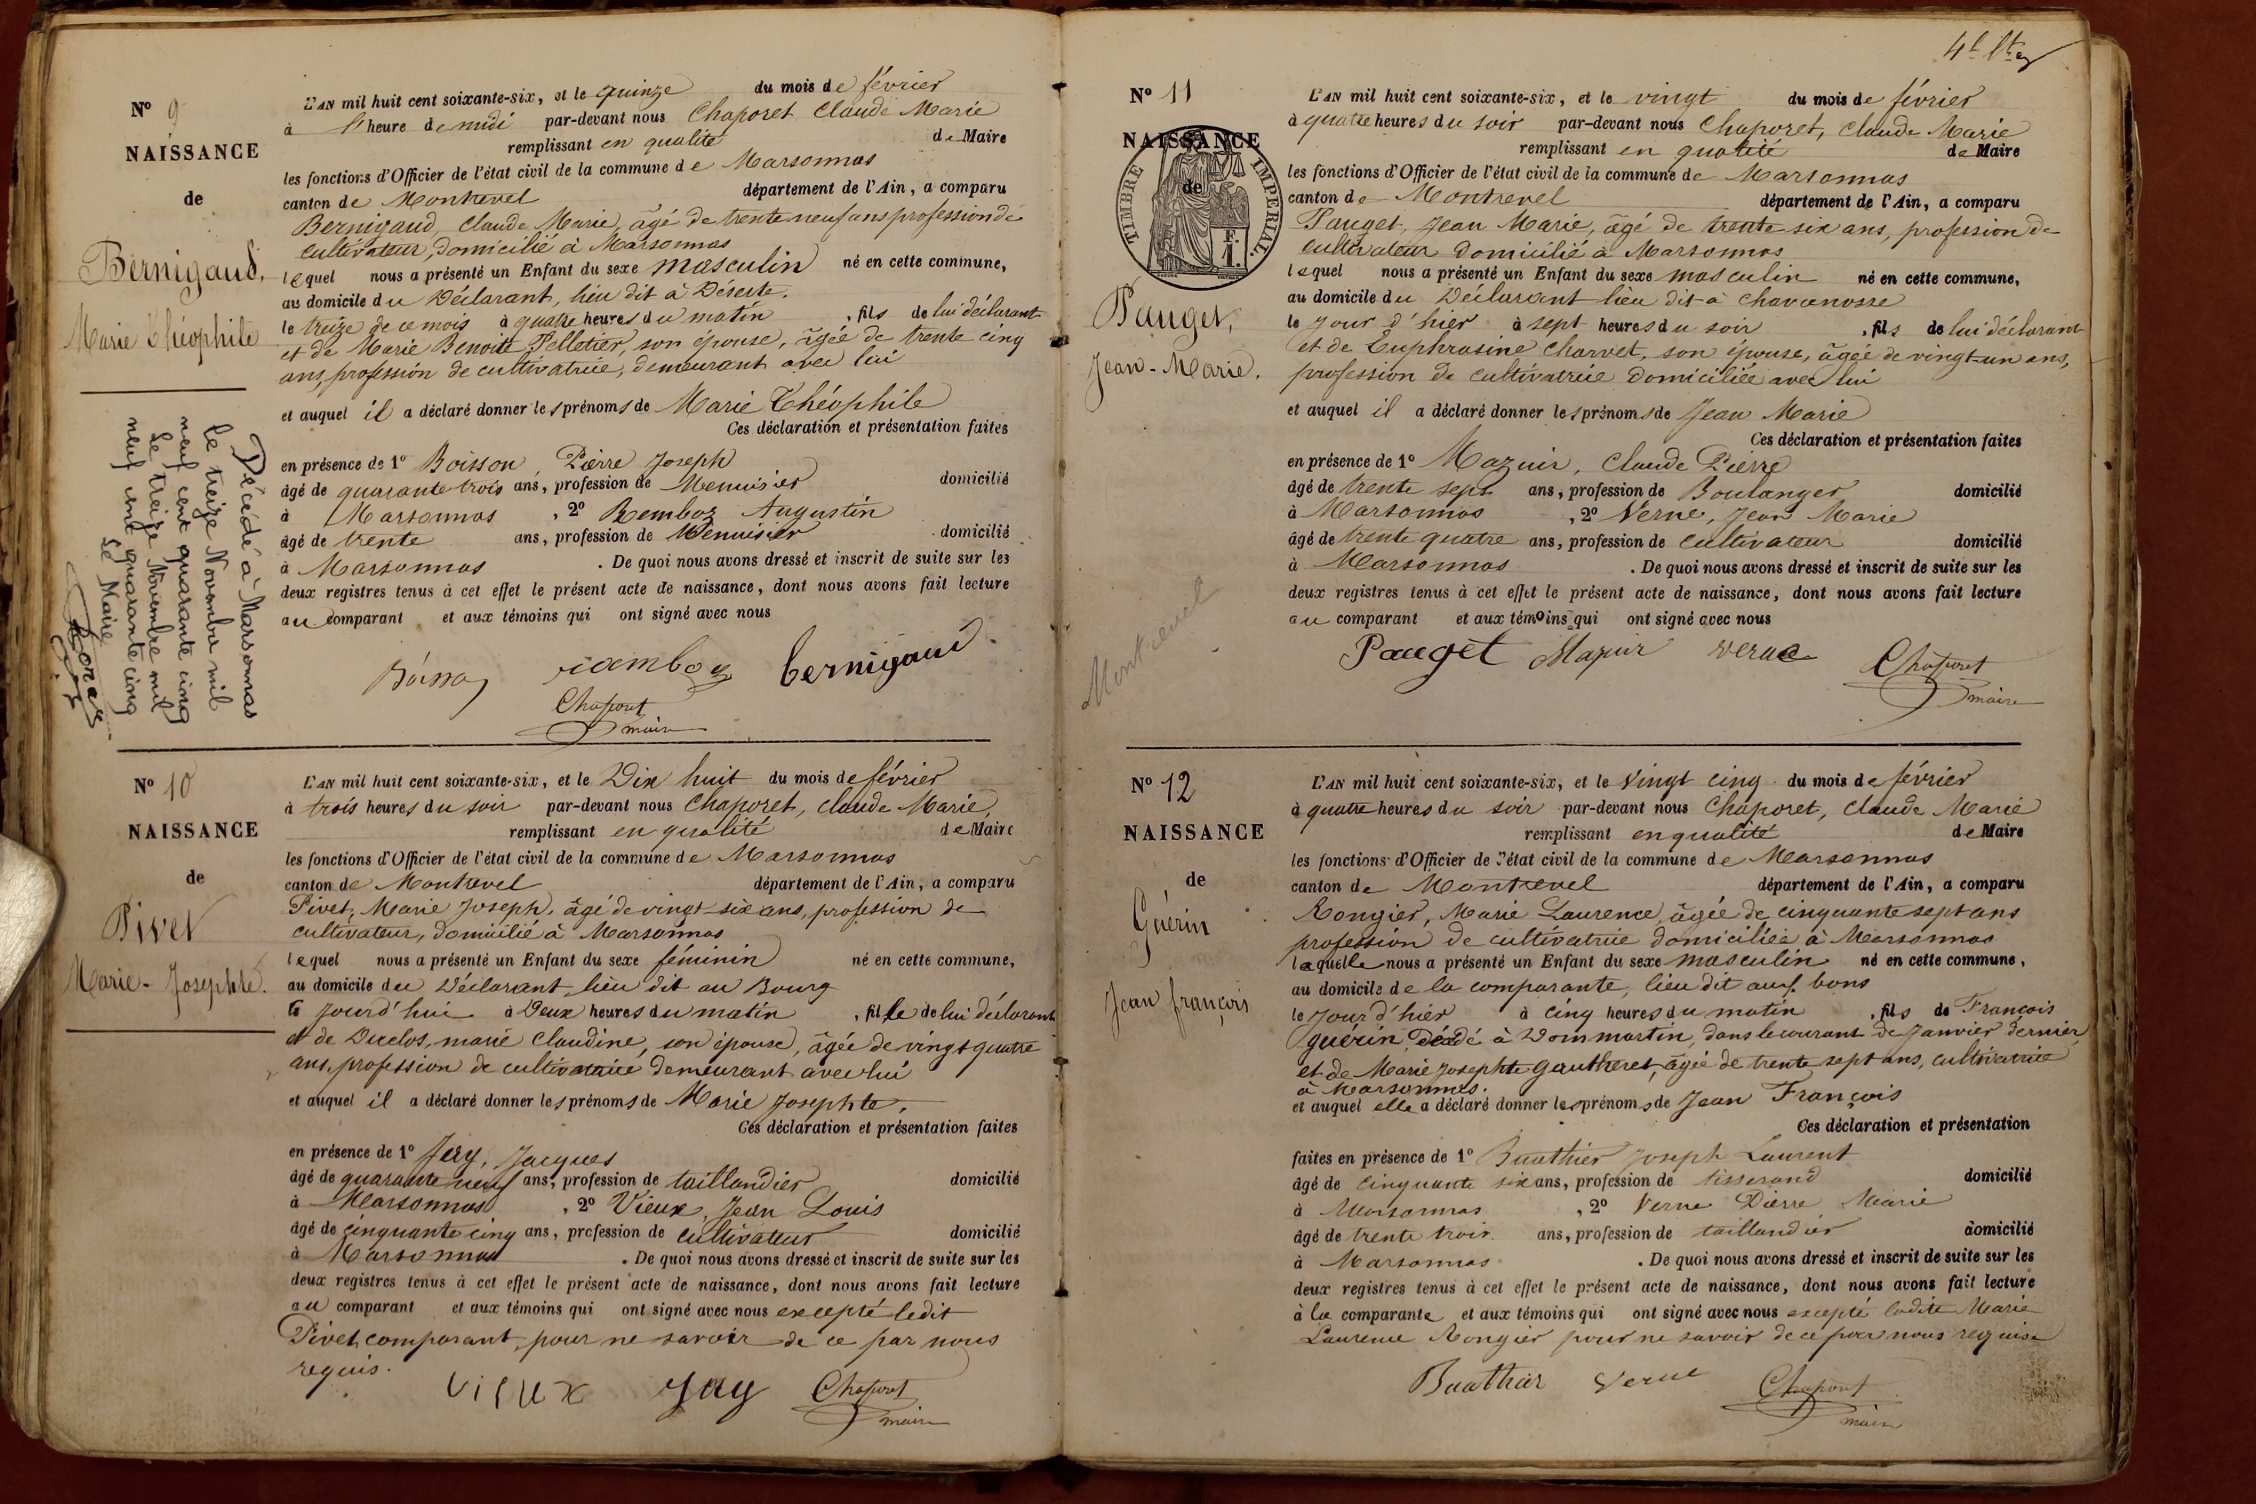 N° 9
NAISSANCE
de
Bernigaud,
Marie Théophile
Décédé à Marsonnas
le treize Novembre mil
neuf cent quarante cinq
Le treize Novembre mil
neuf cent quarante cinq
Le Maire
L'AN mil huit cent soixante-six, et le quinze du mois de février
à l'heure de midi par-devant nous Chaporet Claude Marie
remplissant en qualité de Maire
les fonctions d'Officier de l'état civil de la commune de Marsonnas
canton de Montrevel département de l'Ain, a comparu
Bernigaud, Claude Marie, âgé de trente neuf ans profession de
cultivateur, domicilié à Marsonnas
lequel nous a présenté un Enfant du sexe masculin né en cette commune,
au domicile du Déclarant, lieu dit à Déserte.
le treize de ce mois à quatre heures du matin, fils de lui déclarant
et de Marie Benoite Pelletier, son épouse, âgée de trente cinq
ans, profession de cultivatrice, demeurant avec lui
et auquel il a déclaré donner les prénoms de Marie Théophile
Ces déclaration et présentation faites
en présence de 1° Boisson, Pierre Joseph
âgé de quarante trois ans, profession de Menuisier domicilié
à Marsonnas, 2° Remboz Augustin
âgé de trente ans, profession de Menuisier domicilié
à Marsonnas. De quoi nous avons dressé et inscrit de suite sur les
deux registres tenus à cet effet le présent acte de naissance, dont nous avons fait lecture
au comparant et aux témoins qui ont signé avec nous
Boisson ramboz bernigaud
Chaporet
maire
N° 10
NAISSANCE
de
Pivet
Marie-Josephte.
L'AN mil huit cent soixante-six, et le Dix huit du mois de février
à trois heures du soir par-devant nous Chaporet, Claude Marie,
remplissant en qualité de Maire
les fonctions d'Officier de l'état civil de la commune de Marsonnas
canton de Montrevel département de l'Ain, a comparu
Pivet, Marie Joseph, âgé de vingt-six ans, profession de
cultivateur, domicilié à Marsonnas
lequel nous a présenté un Enfant du sexe féminin né en cette commune,
au domicile du Déclarant, lieu dit au Bourg
le jourd'hui à Deux heures du matin, fille de lui déclarant
et de Duclos, marie Claudine, son épouse, âgée de vingt quatre
ans, profession de cultivatrice demeurant avec lui
et auquel il a déclaré donner les prénoms de Marie Josephte.
Ces déclaration et présentation faites
en présence de 1° Jay, Jacques
âgé de quarante neuf ans, profession de taillandier domicilié
à Marsonnas, 2° Vieux, Jean Louis
âgé de cinquante cinq ans, profession de cultivateur domicilié
à Marsonnas. De quoi nous avons dressé et inscrit de suite sur les
deux registres tenus à cet effet le présent acte de naissance, dont nous avons fait lecture
au comparant et aux témoins qui ont signé avec nous excepté ledit
Pivet, comparant, pour ne savoir de ce par nous
requis.
vieux Jay Chaporet
maire
N° 11
NAISSANCE
de
TIMBRE IMPERIAL.
F.
1.
Pauget,
Jean-Marie.
Montrevel
L'AN mil huit cent soixante-six, et le vingt du mois de février
à quatre heures du soir par-devant nous Chaporet, Claude Marie
remplissant en qualité de Maire
les fonctions d'Officier de l'état civil de la commune de Marsonnas
canton de Montrevel département de l'Ain, a comparu
Pauget, Jean Marie, âgé de trente six ans, profession de
cultivateur domicilié à Marsonnas
lequel nous a présenté un Enfant du sexe masculin né en cette commune,
au domicile du Déclarant lieu dit à Chavanosse
le jour d'hier à sept heures du soir, fils de lui déclarant
et de Euphrasine Charvet, son épouse, âgée de vingt-un ans,
profession de cultivatrice domiciliée avec lui
et auquel il a déclaré donner les prénoms de Jean Marie
Ces déclaration et présentation faites
en présence de 1° Mazuir, Claude Pierre
âgé de trente sept ans, profession de Boulanger domicilié
à Marsonnas, 2° Verne, Jean Marie
âgé de trente quatre ans, profession de cultivateur domicilié
à Marsonnas. De quoi nous avons dressé et inscrit de suite sur les
deux registres tenus à cet effet le présent acte de naissance, dont nous avons fait lecture
au comparant et aux témoins qui ont signé avec nous
Pauget Mazuir verne Chaporet
maire
N° 12
NAISSANCE
de
Guérin
Jean françois
L'AN mil huit cent soixante-six, et le Vingt cinq du mois de février
à quatre heures du soir par-devant nous Chaporet, Claude Marie
remplissant en qualité de Maire
les fonctions d'Officier de l'état civil de la commune de Marsonnas
canton de Montrevel département de l'Ain, a comparu
Rongier, Marie Laurence, âgée de cinquante sept ans
profession de cultivatrice domiciliée à Marsonnas
laquelle nous a présenté un Enfant du sexe masculin né en cette commune,
au domicile de la comparante, lieu dit aux bons
le jour d'hier à cinq heures du matin, fils de François
guérin Décédé à Dommartin, dans le courant de Janvier dernier,
et de Marie Josephte Gautheret, âgée de trente sept ans, cultivatrice
à Marsonnas.
et auquel elle a déclaré donner les prénoms de Jean François
Ces déclaration et présentation
faites en présence de 1° Buathier Joseph Laurent
âgé de cinquante six ans, profession de tisserand domicilié
à Marsonnas, 2° Verne Pierre Marie
âgé de trente trois ans, profession de taillandier domicilié
à Marsonnas. De quoi nous avons dressé et inscrit de suite sur les
deux registres tenus à cet effet le présent acte de naissance, dont nous avons fait lecture
à la comparante et aux témoins qui ont signé avec nous excepté ladite Marie
Laurence Rongier pour ne savoir de ce par nous requise
Buathier Verne Chaporet
maire